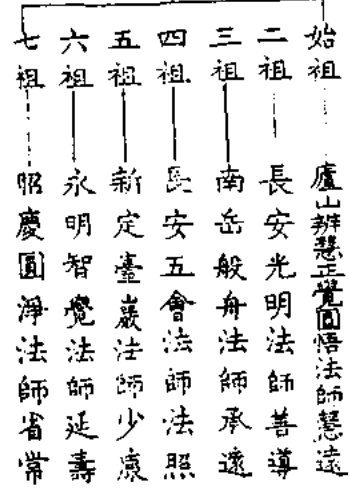 始祖 廬山辨慧正覺圓悟法師慧遠
二祖 長安光明法師善導
三祖 南岳般舟法師承遠
四祖 長安五會法師法照
五祖 新定臺巖法師少康
六祖 永明智覺法師延壽
七祖 昭慶圓淨法師省常